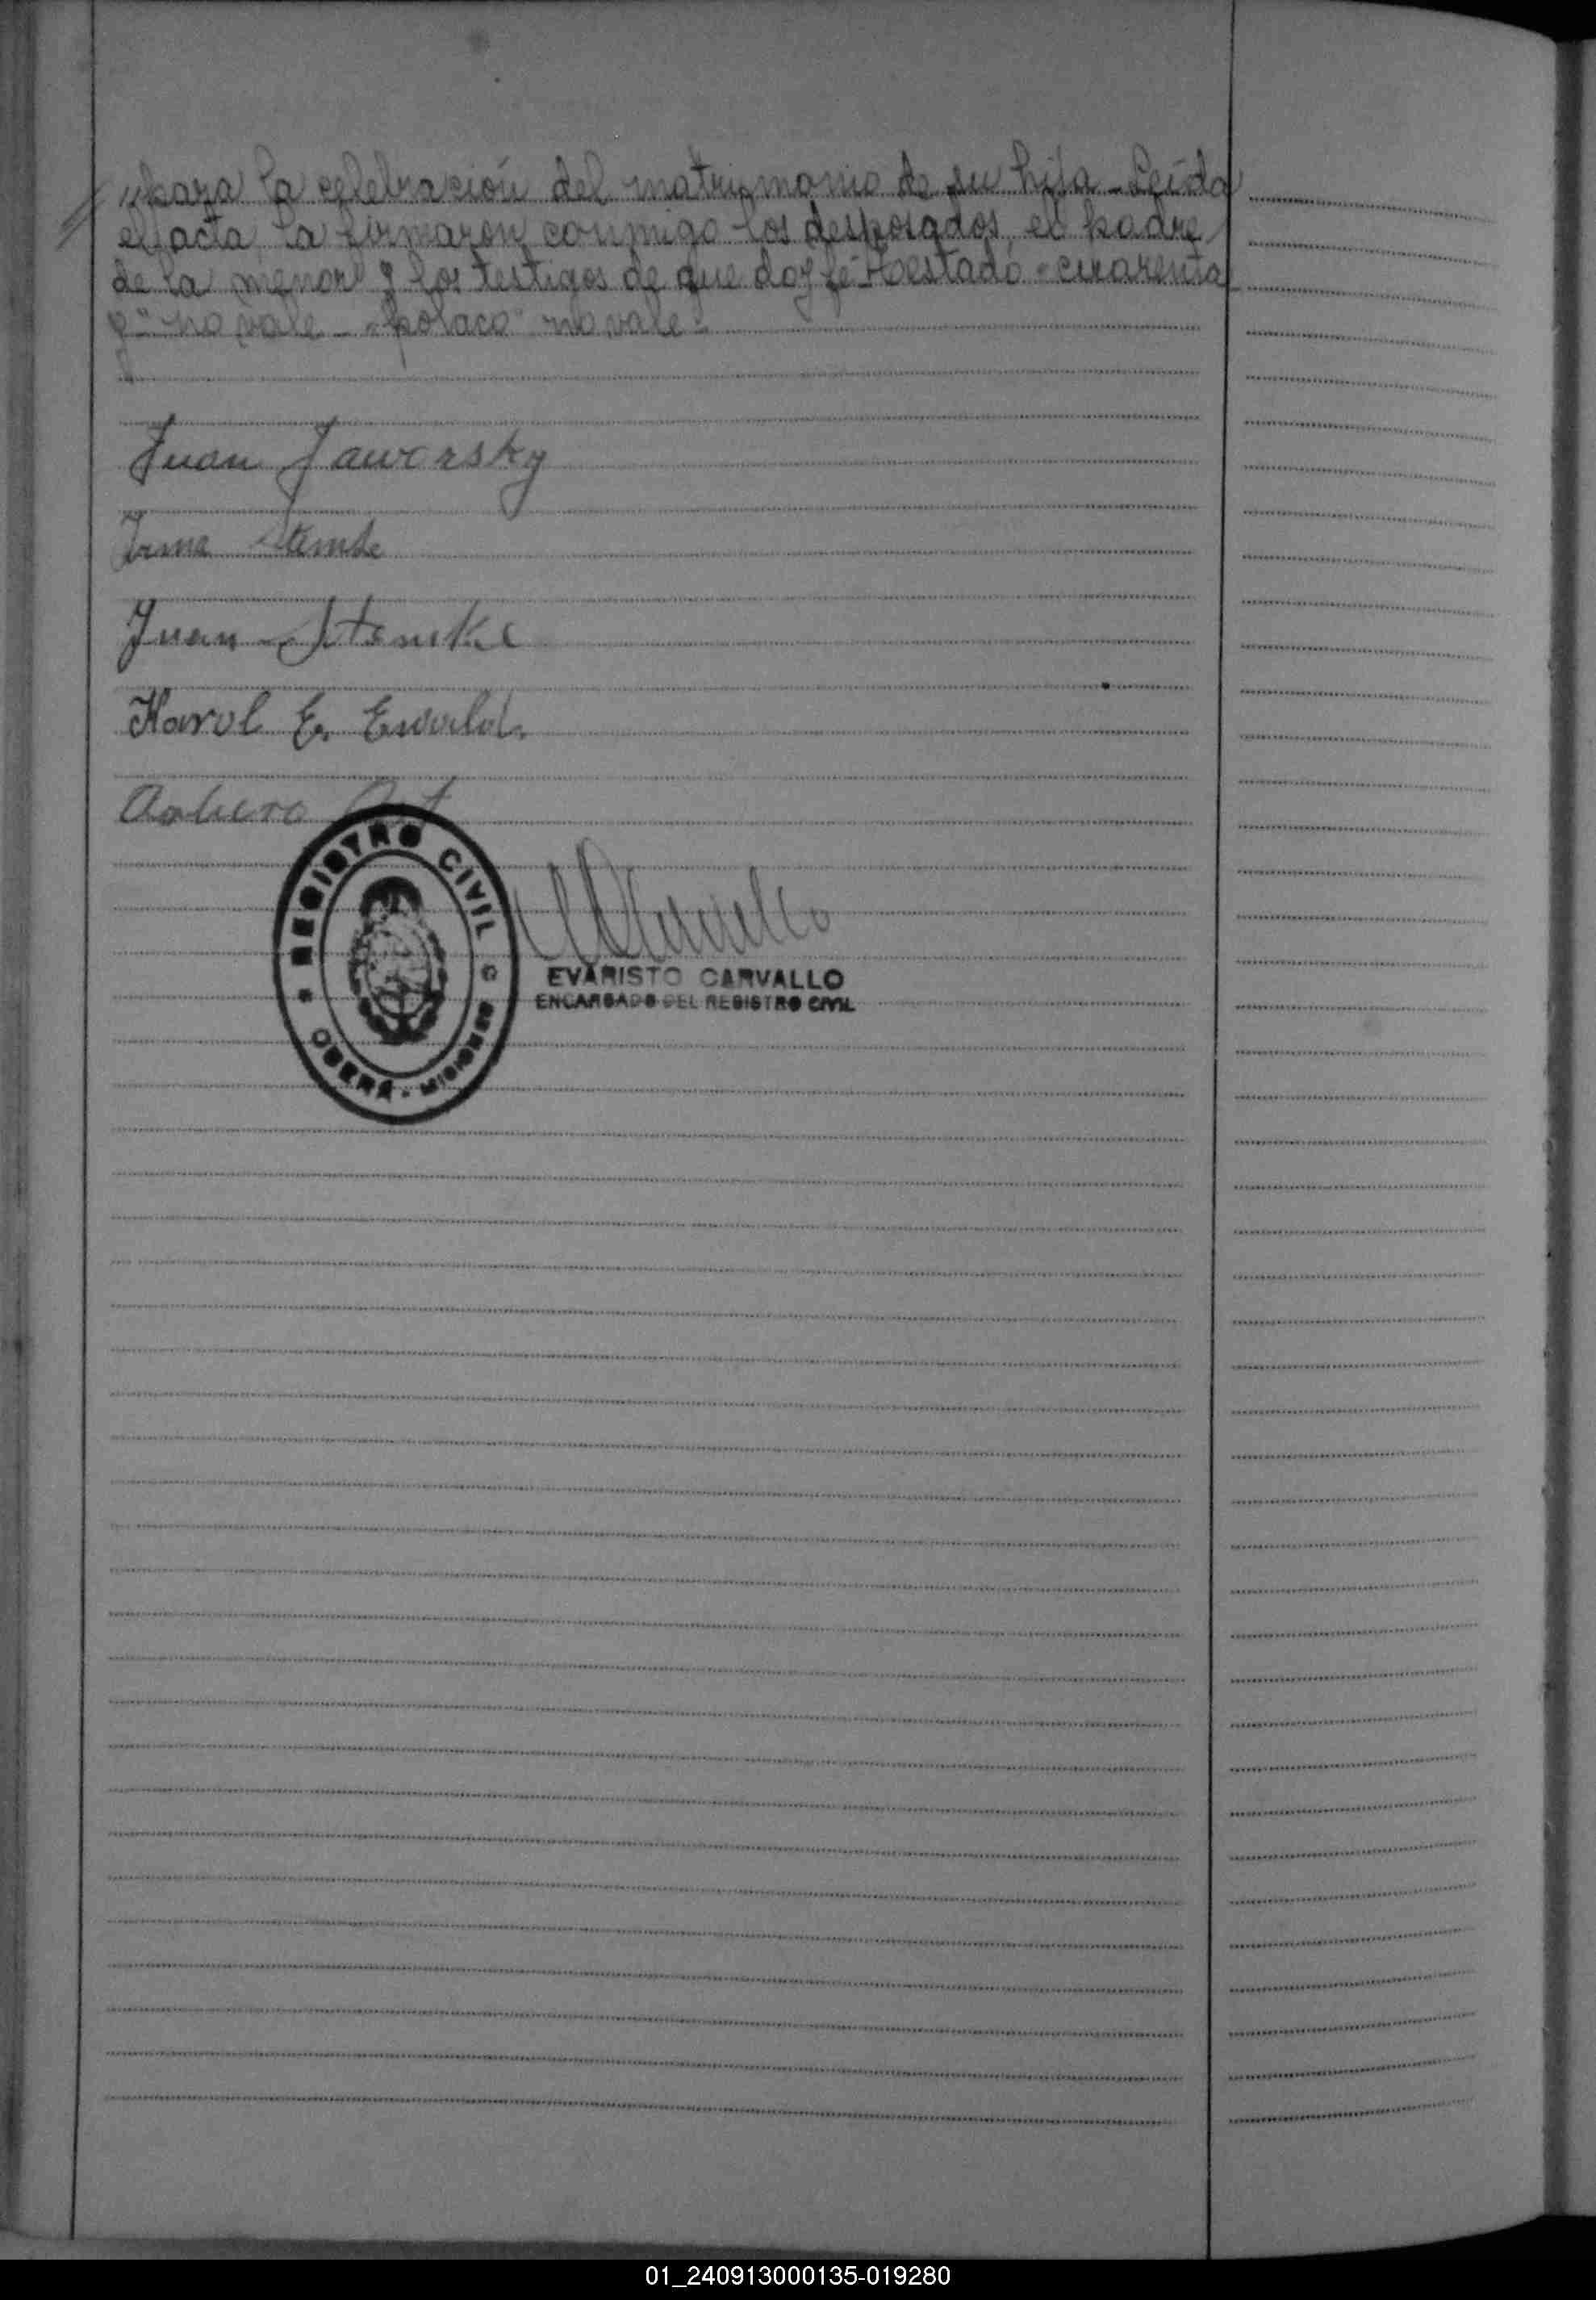 "para la celebración del matrimonio de su hija - Leída
el acta, la firmaron conmigo los desposados, el padre
de la menor y los testigos de que doy fé - Testado "cuarenta
y" no vale - "polaco" no vale -
Juan Jaworsky
Irma Stemke
Juan Stemke
Karol E. Ewald
REGISTRO CIVIL
OBERÁ - MISIONES
EVARISTO CARVALLO
ENCARGADO DEL REGISTRO CIVIL
01_240913000135-019280